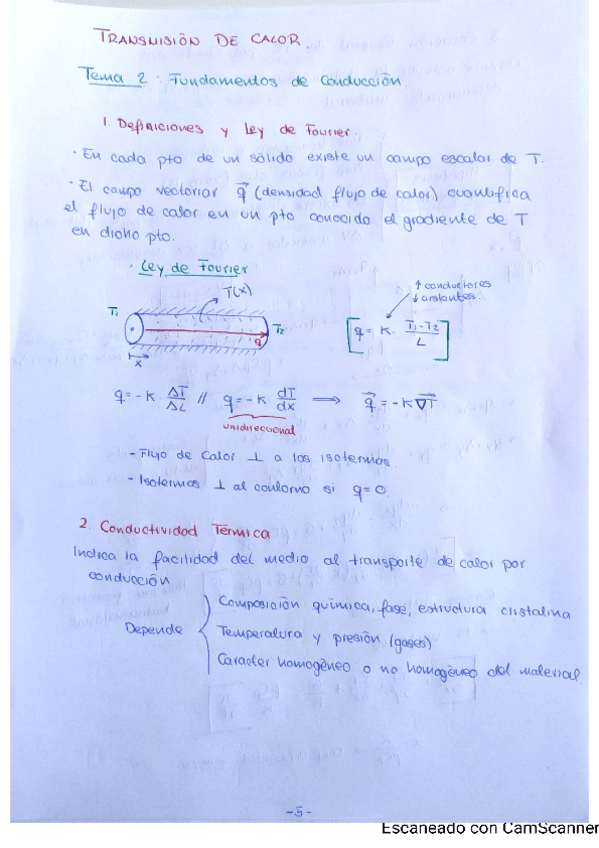 TRANSMISIÓN DE CALOR.
Tema 2: Fundamentos de Conducción.
1. Definiciones y Ley de Fourier.
· En cada pto de un sólido existe un campo escalar de T.
· El campo vectorial q⃗ (densidad flujo de calor) cuantifica
el flujo de calor en un pto conocido el gradiente de T
en dicho pto.
· Ley de Fourier
T(x)
↑ conductores
↓ aislantes
T₁
T₂
q
x
[q = K · (T₁-T₂)/L]
q = -K · ΔT/ΔL // q = -K · dT/dx ⟹ q⃗ = -K ∇T
unidireccional
- Flujo de Calor ⊥ a las isotermas
- Isotermas ⊥ al contorno si q=0.
2. Conductividad Térmica
Indica la facilidad del medio al transporte de calor por
conducción
Depende
Composición química, fase, estructura cristalina
Temperatura y presión (gases)
Caracter homogéneo o no homogéneo del material.
-5-
Escaneado con CamScanner